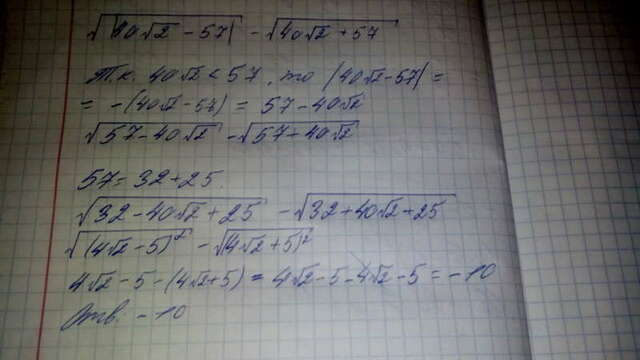 √|40√2 - 57| - √40√2 + 57
Т.к. 40√2 < 57, то |40√2 - 57| =
= -(40√2 - 57) = 57 - 40√2
√57 - 40√2 - √57 + 40√2
57 = 32 + 25.
√32 - 40√2 + 25 - √32 + 40√2 + 25
√(4√2 - 5)² - √(4√2 + 5)²
4√2 - 5 - (4√2 + 5) = 4√2 - 5 - 4√2 - 5 = -10
Отв. -10